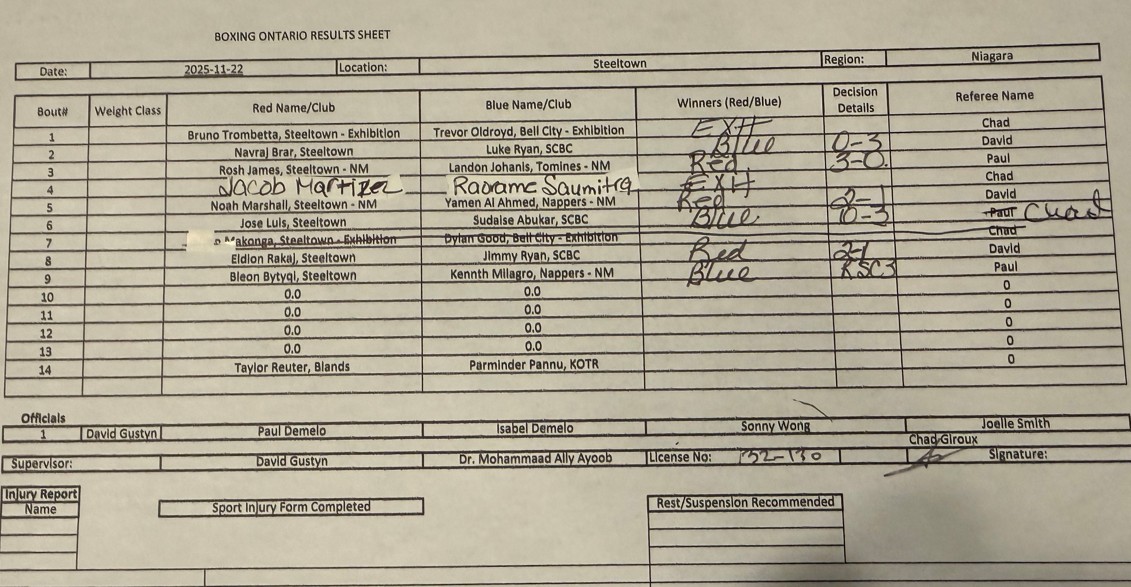 BOXING ONTARIO RESULTS SHEET
Date: 2025-11-22 Location: Steeltown Region: Niagara
Bout# Weight Class Red Name/Club Blue Name/Club Winners (Red/Blue) Decision Details Referee Name
1 Bruno Trombetta, Steeltown - Exhibition Trevor Oldroyd, Bell City - Exhibition EXH Chad
2 Navraj Brar, Steeltown Luke Ryan, SCBC Blue 0-3 David
3 Rosh James, Steeltown - NM Landon Johanis, Tomines - NM Red 3-0 Paul
4 Jacob Martizez Raorame Saumitra EXH Chad
5 Noah Marshall, Steeltown - NM Yamen Al Ahmed, Nappers - NM Red 2-1 David
6 Jose Luis, Steeltown Sudaise Abukar, SCBC Blue 0-3 Paul Chad
7 Makonga, Steeltown - Exhibition Dylan Good, Bell City - Exhibition Chad
8 Eldion Rakaj, Steeltown Jimmy Ryan, SCBC Red 2-1 David
9 Bleon Bytyqi, Steeltown Kennth Milagro, Nappers - NM Blue RSC3 Paul
10 0.0 0.0 0
11 0.0 0.0 0
12 0.0 0.0 0
13 0.0 0.0 0
14 Taylor Reuter, Blands Parminder Pannu, KOTR 0
Officials
1 David Gustyn Paul Demelo Isabel Demelo Sonny Wong Joelle Smith
Chad Giroux
Supervisor: David Gustyn Dr. Mohammaad Ally Ayoob License No: 132-130 Signature:
Injury Report
Name Sport Injury Form Completed Rest/Suspension Recommended